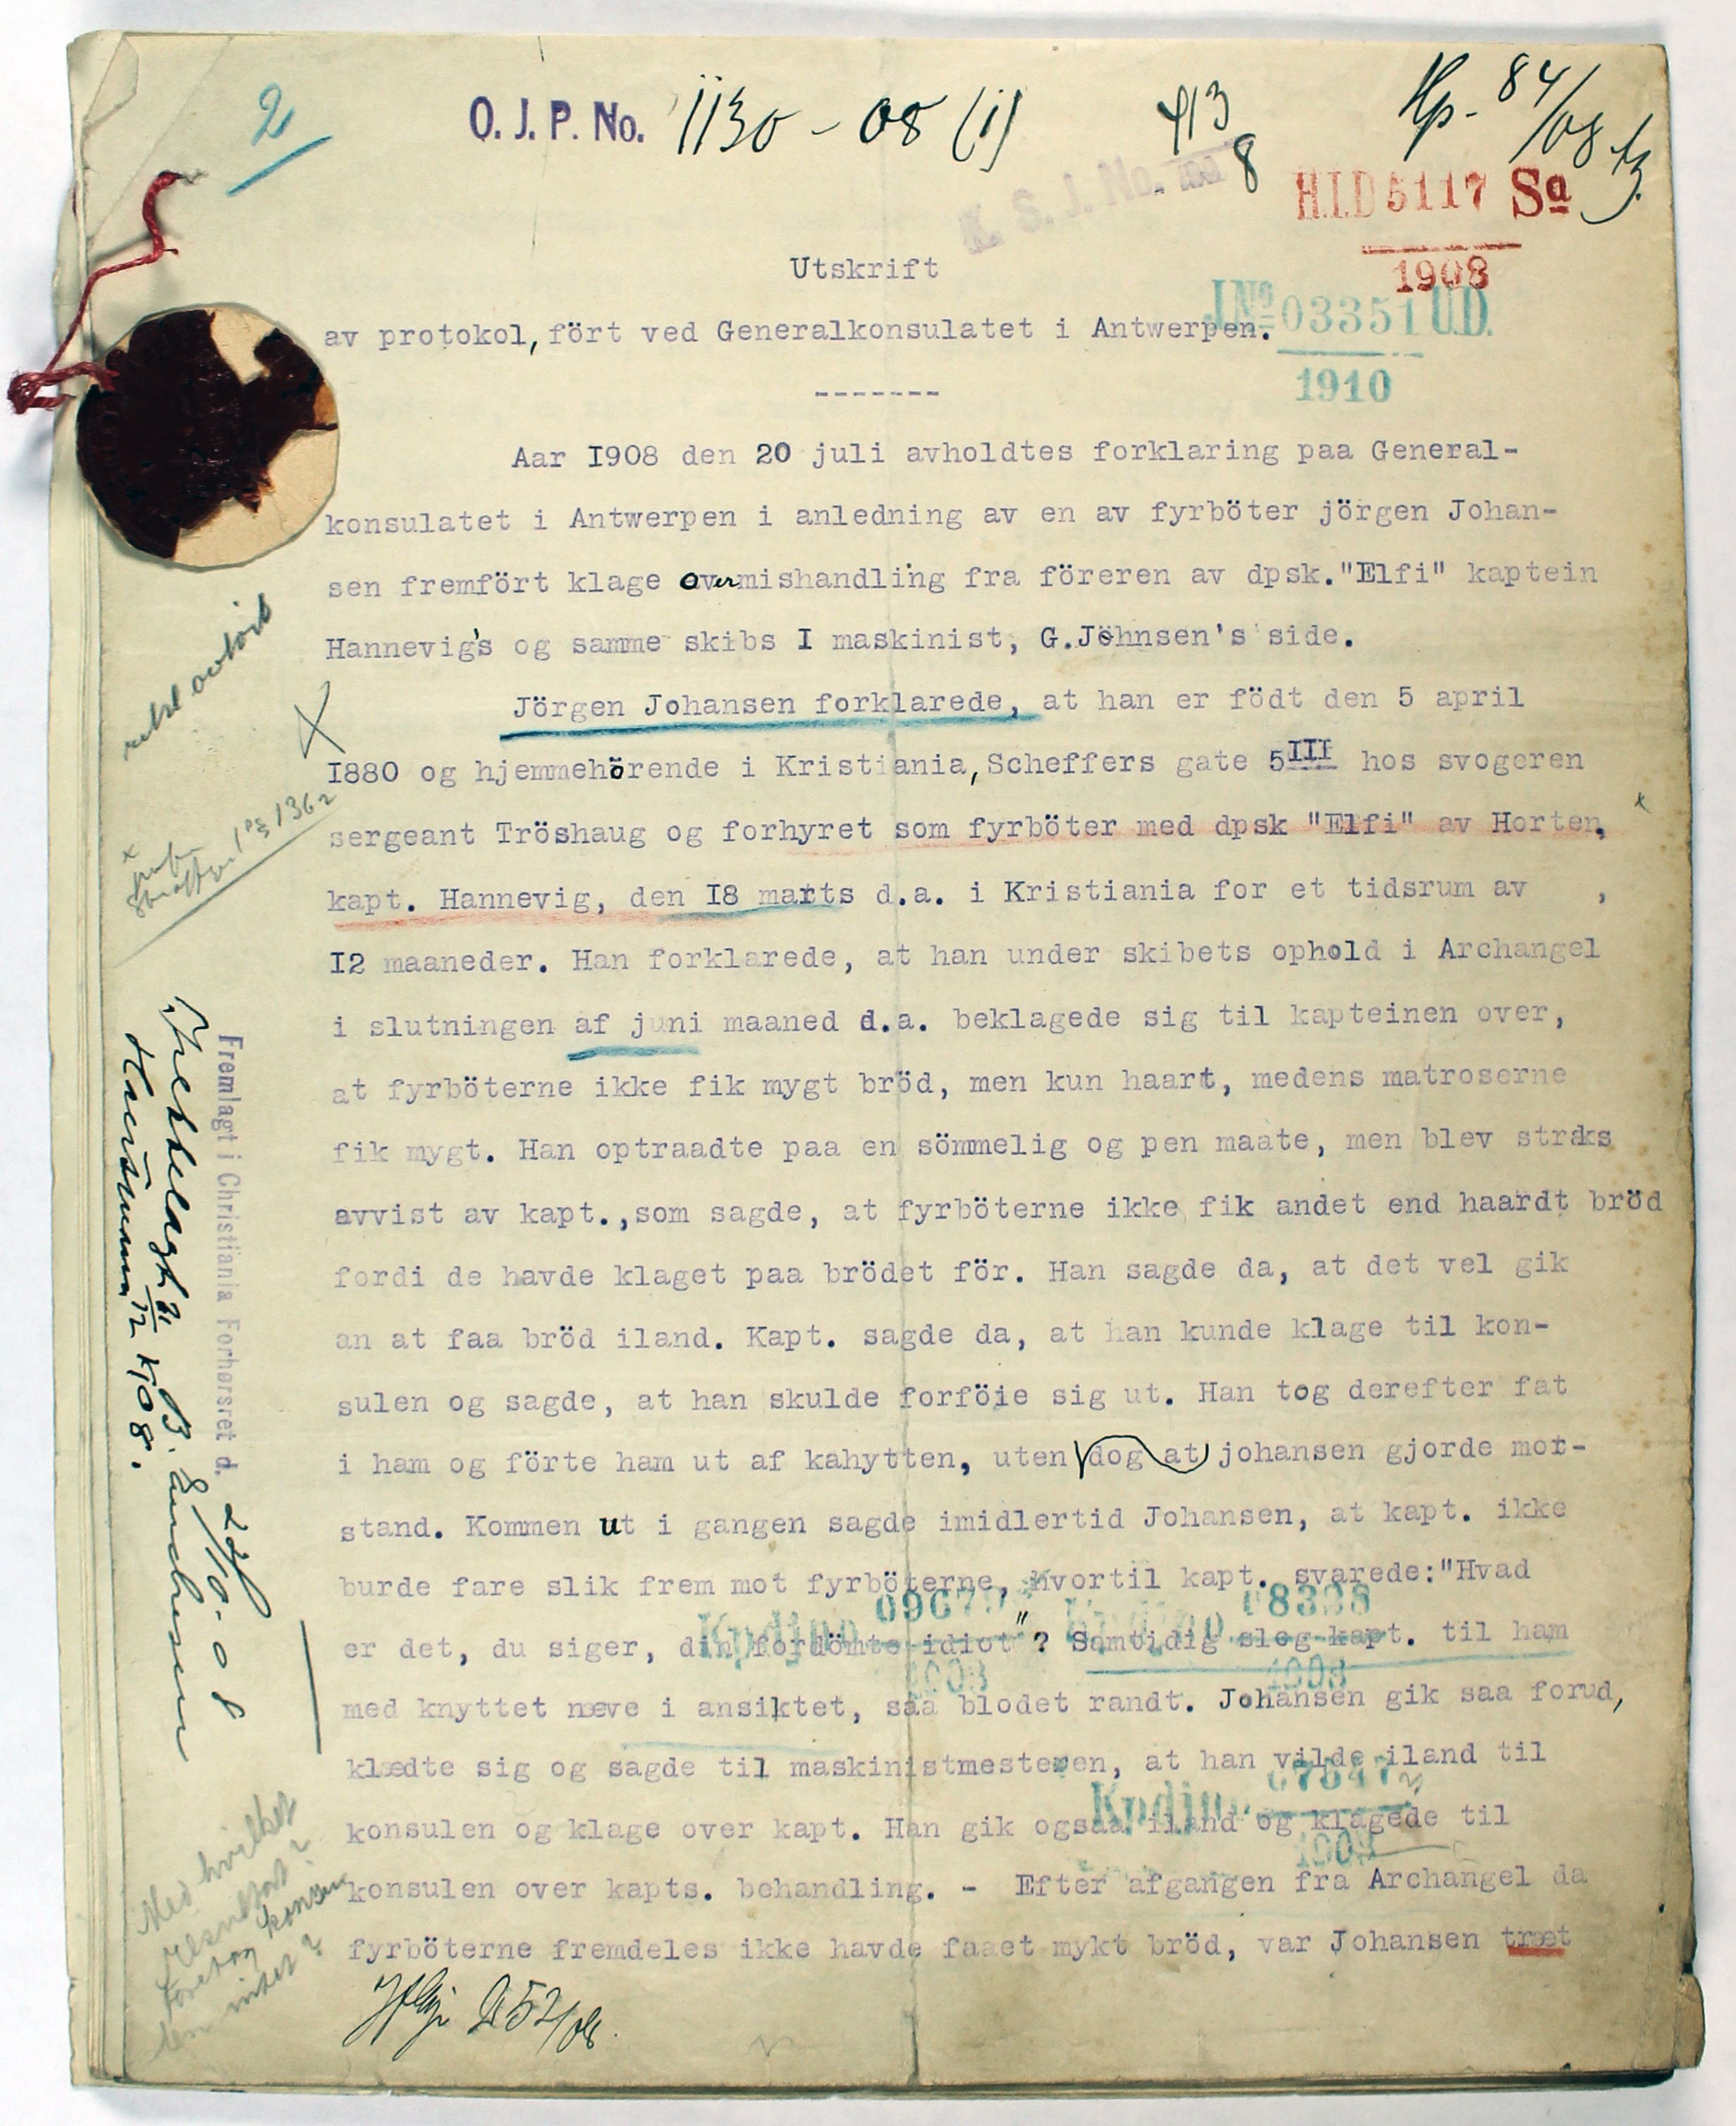 2
O. J. P. No. 1130 - 08 (1)
413
8
Hp. - 84/08
K. S. J. No.
H.I.D 5117 Sa
1908
Utskrift
J.No 03351 U.D.
1910
av protokol, fört ved Generalkonsulatet i Antwerpen.
-------
Aar I908 den 20 juli avholdtes forklaring paa General-
konsulatet i Antwerpen i anledning av en av fyrböter jörgen Johan-
sen fremfört klage over mishandling fra föreren av dpsk."Elfi" kaptein
Hannevig's og samme skibs I maskinist, G.Jöhnsen's side.
Jörgen Johansen forklarede, at han er födt den 5 april
I880 og hjemmehörende i Kristiania, Scheffers gate 5III hos svogeren
sergeant Tröshaug og forhyret som fyrböter med dpsk "Elfi" av Horten,
kapt. Hannevig, den I8 marts d.a. i Kristiania for et tidsrum av ,
I2 maaneder. Han forklarede, at han under skibets ophold i Archangel
i slutningen af juni maaned d.a. beklagede sig til kapteinen over,
at fyrböterne ikke fik mygt bröd, men kun haart, medens matroserne
fik mygt. Han optraadte paa en sömmelig og pen maate, men blev straks
avvist av kapt.,som sagde, at fyrböterne ikke fik andet end haardt bröd
fordi de havde klaget paa brödet för. Han sagde da, at det vel gik
an at faa bröd iland. Kapt. sagde da, at han kunde klage til kon-
sulen og sagde, at han skulde forföie sig ut. Han tog derefter fat
i ham og förte ham ut af kahytten, uten dog at johansen gjorde mot-
stand. Kommen ut i gangen sagde imidlertid Johansen, at kapt. ikke
burde fare slik frem mot fyrböterne, hvortil kapt. svarede:"Hvad
er det, du siger, din fordömte idiot"? Samtidig slog kapt. til ham
med knyttet næve i ansiktet, saa blodet randt. Johansen gik saa forud,
klædte sig og sagde til maskinistmesteren, at han vilde iland til
konsulen og klage over kapt. Han gik ogsaa iland og klagede til
konsulen over kapts. behandling. - Efter afgangen fra Archangel da
fyrböterne fremdeles ikke havde faaet mykt bröd, var Johansen træt
1908
1908
1908
Fremlagt i Christiania Forhørsret d. 22/10-08
Med hvilket
resultat?